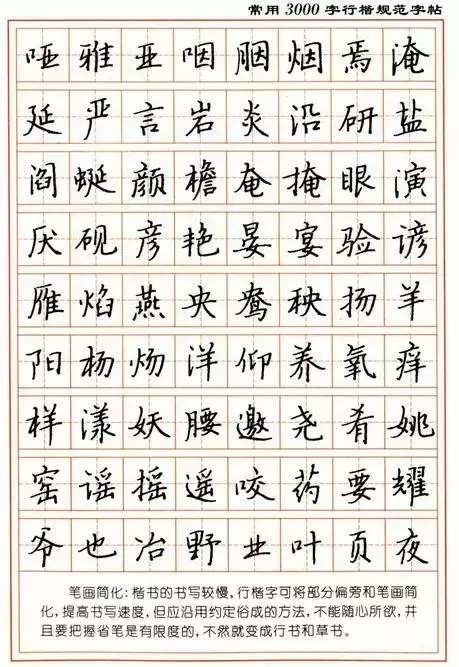 常用3000字行楷规范字帖
哑雅亚咽胭烟焉淹
延严言岩炎沿研盐
阎蜒颜檐奄掩眼演
厌砚彦艳晏宴验谚
雁焰燕央鸯秧扬羊
阳杨炀洋仰养氧痒
样漾妖腰邀尧肴姚
窑谣摇遥咬药要耀
爷也冶野业叶页夜
笔画简化：楷书的书写较慢，行楷字可将部分偏旁和笔画简
化，提高书写速度，但应沿用约定俗成的方法，不能随心所欲，并
且要把握省笔是有限度的，不然就变成行书和草书。